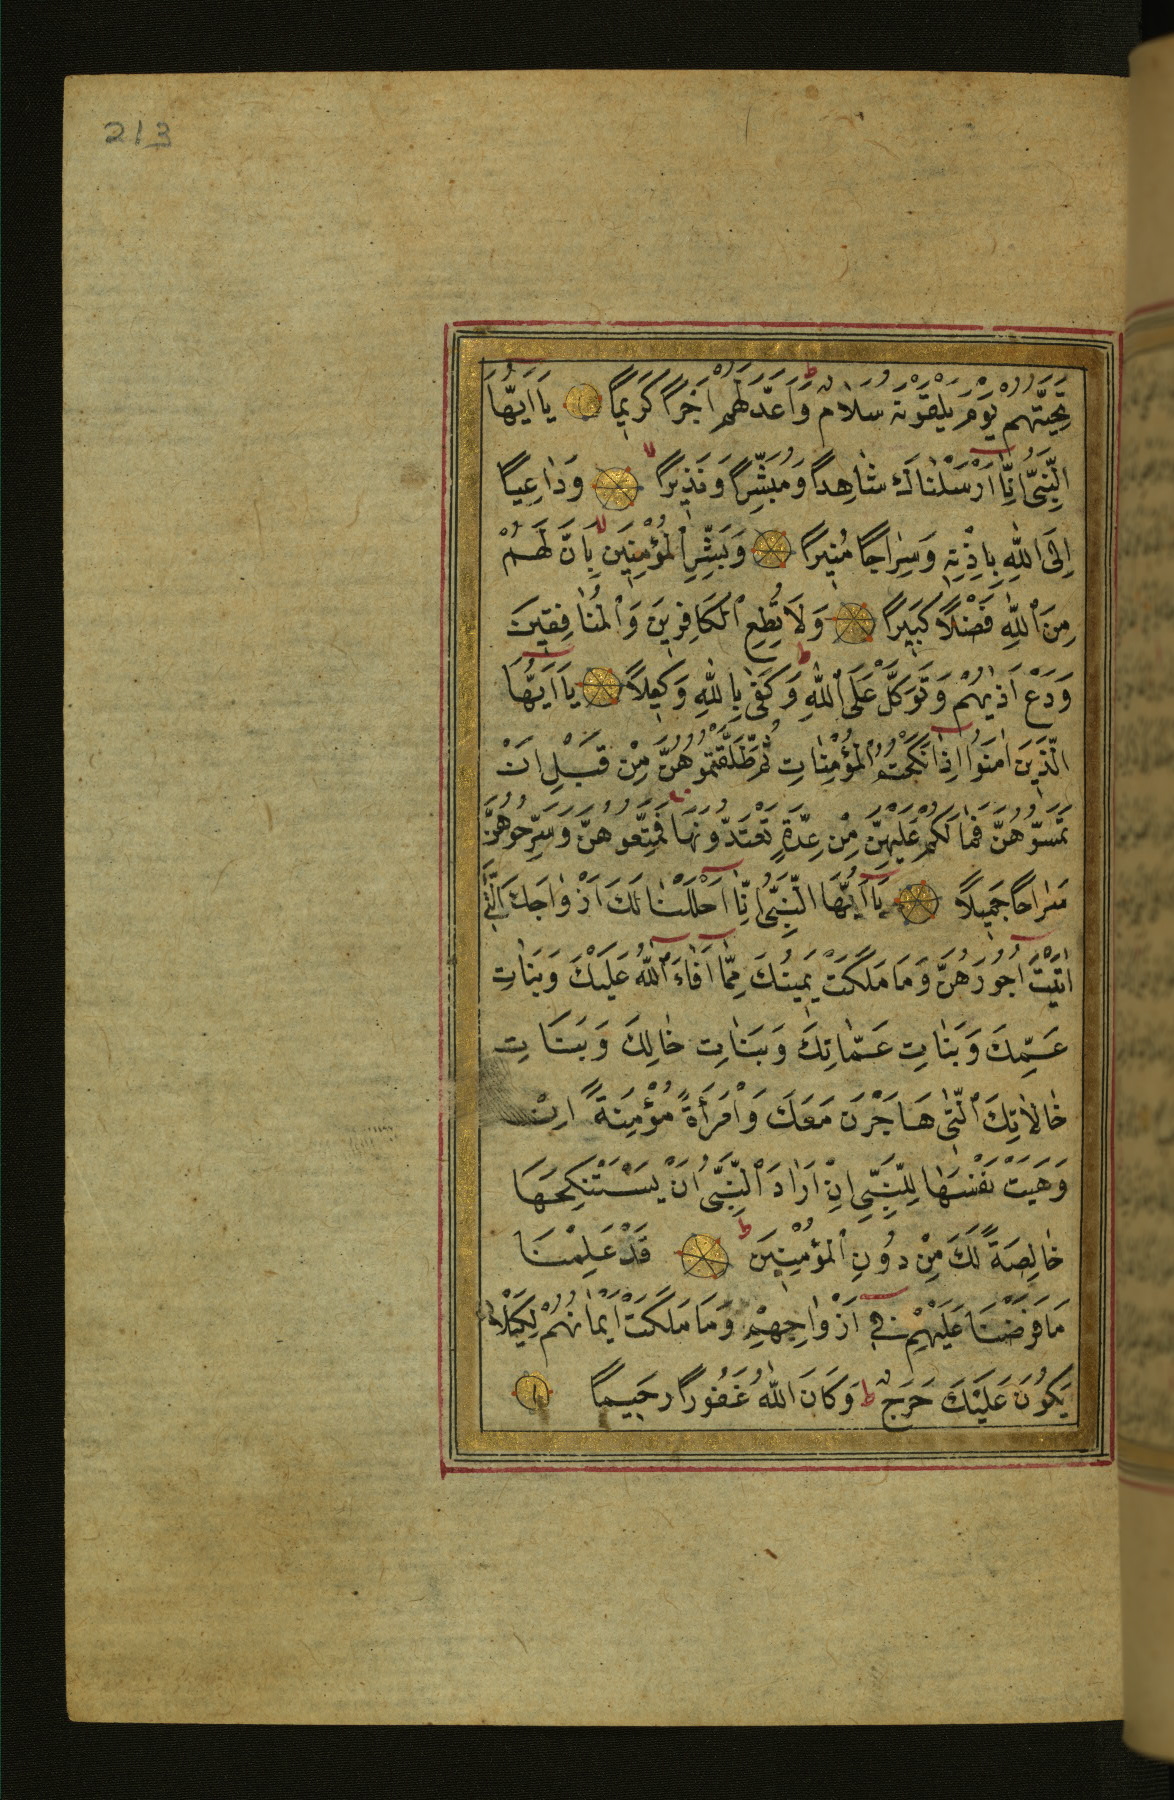 213
تَحِيَّتُهُمْ يَوْمَ يَلْقَوْنَهُ سَلَامٌ ط وَاَعَدَّ لَهُمْ اَجْرًا كَرِيمًا يَا اَيُّهَا
النَّبِيُّ اِنَّا اَرْسَلْنَاكَ شَاهِدًا وَمُبَشِّرًا وَنَذِيرًا لا وَدَاعِيًا
اِلَى اللّٰهِ بِاِذْنِهِ وَسِرَاجًا مُنِيرًا وَبَشِّرِ الْمُؤْمِنِينَ بِاَنَّ لَهُمْ
مِنَ اللّٰهِ فَضْلًا كَبِيرًا وَلَا تُطِعِ الْكَافِرِينَ وَالْمُنَافِقِينَ
وَدَعْ اَذٰيهُمْ وَتَوَكَّلْ عَلَى اللّٰهِ ط وَكَفٰى بِاللّٰهِ وَكِيلًا يَا اَيُّهَا
الَّذِينَ اٰمَنُوا اِذَا نَكَحْتُمُ الْمُؤْمِنَاتِ ثُمَّ طَلَّقْتُمُوهُنَّ مِنْ قَبْلِ اَنْ
تَمَسُّوهُنَّ فَمَا لَكُمْ عَلَيْهِنَّ مِنْ عِدَّةٍ تَعْتَدُّونَهَا فَمَتِّعُوهُنَّ وَسَرِّحُوهُنَّ
سَرَاحًا جَمِيلًا يَا اَيُّهَا النَّبِيُّ اِنَّا اَحْلَلْنَا لَكَ اَزْوَاجَكَ الّٰتِي
اٰتَيْتَ اُجُورَهُنَّ وَمَا مَلَكَتْ يَمِينُكَ مِمَّا اَفَاءَ اللّٰهُ عَلَيْكَ وَبَنَاتِ
عَمِّكَ وَبَنَاتِ عَمَّاتِكَ وَبَنَاتِ خَالِكَ وَبَنَاتِ
خَالَاتِكَ الّٰتِي هَاجَرْنَ مَعَكَ وَامْرَأَةً مُؤْمِنَةً اِنْ
وَهَبَتْ نَفْسَهَا لِلنَّبِيِّ اِنْ اَرَادَ النَّبِيُّ اَنْ يَسْتَنْكِحَهَا
خَالِصَةً لَكَ مِنْ دُونِ الْمُؤْمِنِينَ ط قَدْ عَلِمْنَا
مَا فَرَضْنَا عَلَيْهِمْ فِي اَزْوَاجِهِمْ وَمَا مَلَكَتْ اَيْمَانُهُمْ لِكَيْلَا
يَكُونَ عَلَيْكَ حَرَجٌ ط وَكَانَ اللّٰهُ غَفُورًا رَحِيمًا